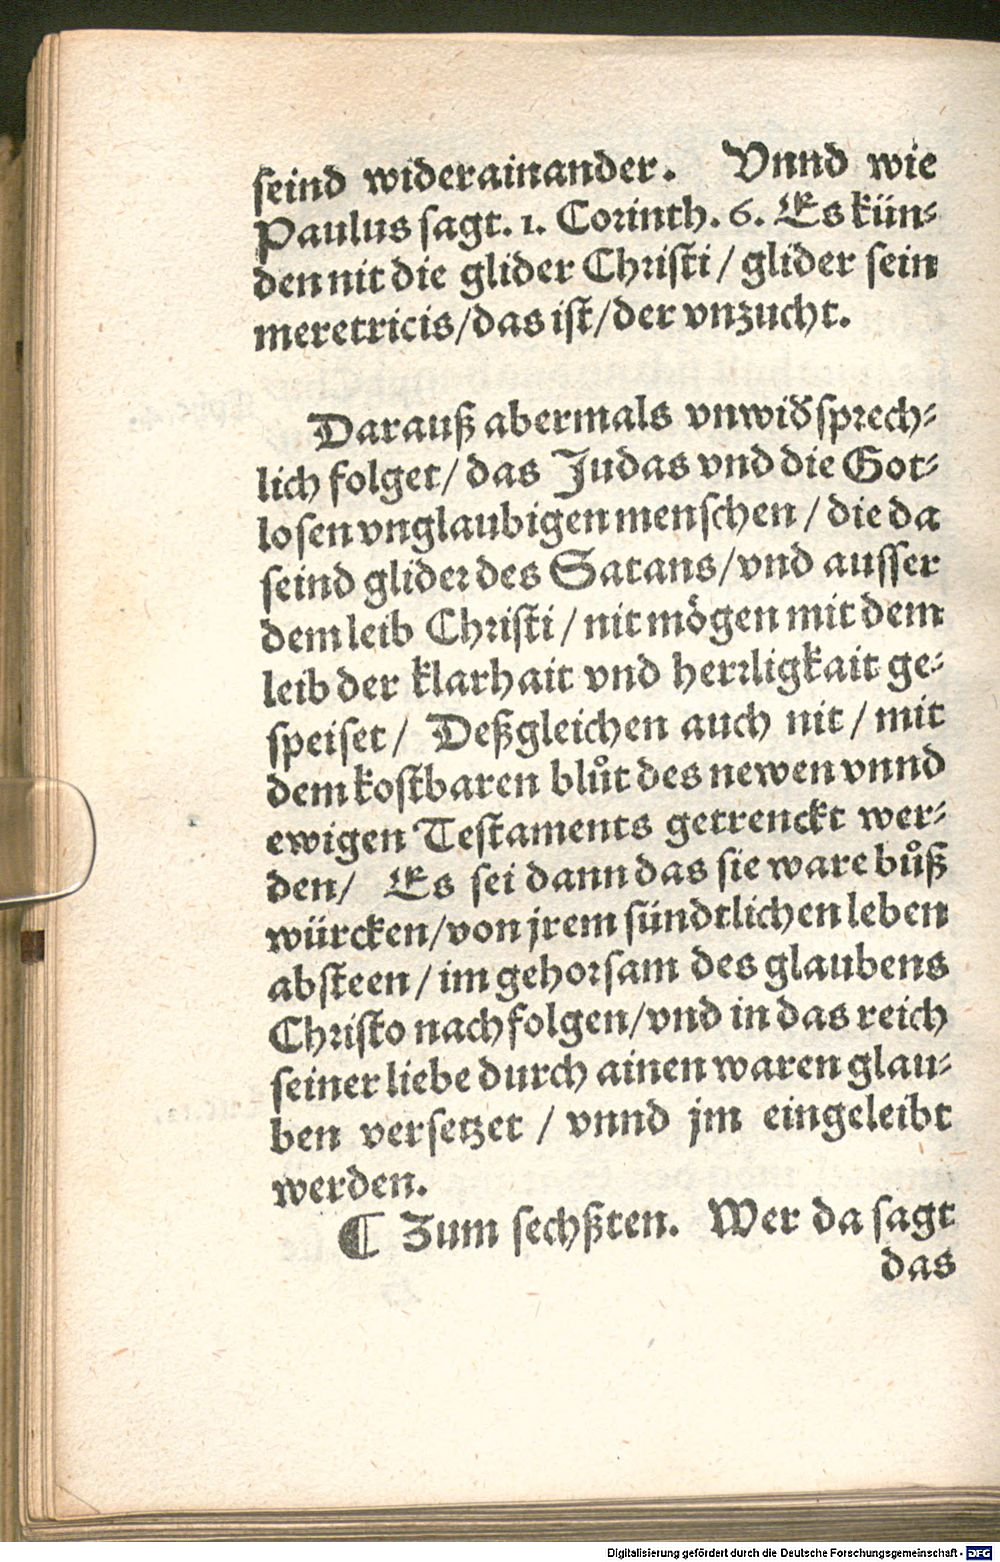 seind widerainander. Vnnd wie
Paulus sagt. 1. Corinth. 6. Es kün⸗
den nit die glider Christi / glider sein
meretricis/das ist/der vnzucht.
Darauß abermals vnwiđsprech⸗
lich folget/ das Judas vnd die Got⸗
losen vnglaubigen menschen / die da
seind glider des Satans/vnd ausser
dem leib Christi / nit mögen mit dem
leib der klarhait vnd herrligkait ge⸗
speiset/ Deßgleichen auch nit / mit
dem kostbaren blůt des newen vnnd
ewigen Testaments getrenckt wer⸗
den/ Es sei dann das sie ware bůß
würcken/von jrem sündtlichen leben
absteen / im gehorsam des glaubens
Christo nachfolgen/vnd in das reich
seiner liebe durch ainen waren glau⸗
ben versetzet / vnnd jm eingeleibt
werden.
¶ Zum sechßten. Wer da sagt
das
Digitalisierung gefördert durch die Deutsche Forschungsgemeinschaft - DFG